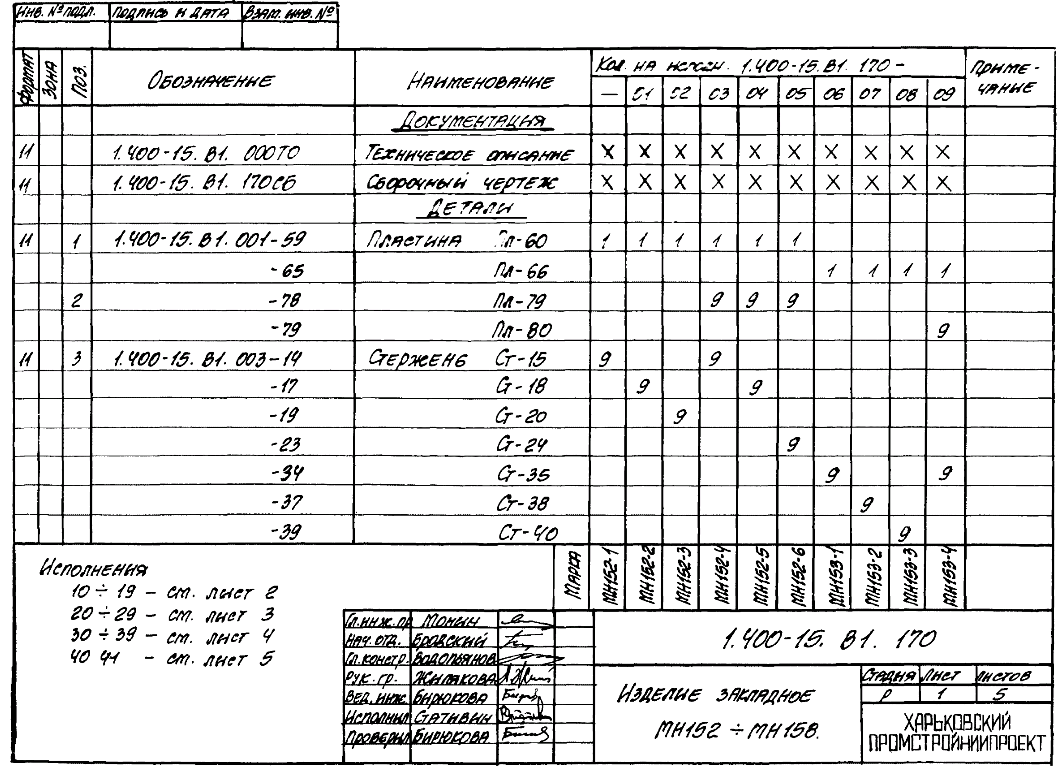 Инв. № подл. Подпись и дата Взам. инв. №
Формат Зона Поз. Обозначение Наименование Кол. на исполн. 1.400-15.В1. 170- Приме-
чание
— 01 02 03 04 05 06 07 08 09
Документация
11 1.400-15. В1. 000ТО Техническое описание X X X X X X X X X X
11 1.400-15. В1. 170СБ Сборочный чертеж X X X X X X X X X X
Детали
11 1 1.400-15. В1. 001-59 Пластина Пл-60 1 1 1 1 1 1
-65 Пл-66 1 1 1 1
2 -78 Пл-79 9 9 9
-79 Пл-80 9
11 3 1.400-15. В1. 003-14 Стержень Ст-15 9 9
-17 Ст-18 9 9
-19 Ст-20 9
-23 Ст-24 9
-34 Ст-35 9 9
-37 Ст-38 9
-39 Ст-40 9
Марка МН152-1 МН152-2 МН152-3 МН152-4 МН152-5 МН152-6 МН153-1 МН153-2 МН153-3 МН153-4
Исполнения
10 ÷ 19 - см. лист 2
20 ÷ 29 - см. лист 3
30 ÷ 39 - см. лист 4
40 41 - см. лист 5
Гл.инж.пр Монин
Нач. отд. Бродский
Гл.констр. Водопьянов
Рук. гр. Жилякова
Вед. инж. Бирюкова
Исполнил Стативин
Проверил Бирюкова
1.400-15. В1. 170
Изделие закладное
МН152 ÷ МН158.
Стадия Лист Листов
Р 1 5
ХАРЬКОВСКИЙ
ПРОМСТРОЙНИИПРОЕКТ